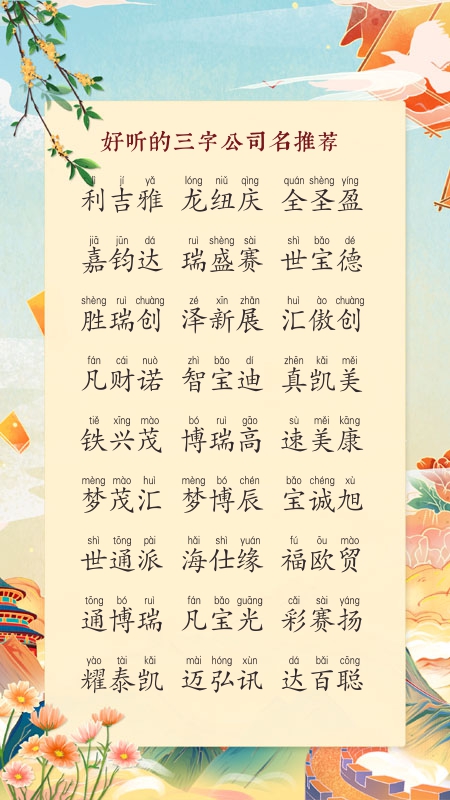 好听的三字公司名推荐
lì jí yǎ lóng niǔ qìng quán shèng yíng
利吉雅 龙纽庆 全圣盈
jiā jūn dá ruì shèng sài shì bǎo dé
嘉钧达 瑞盛赛 世宝德
shèng ruì chuàng zé xīn zhǎn huì ào chuàng
胜瑞创 泽新展 汇傲创
fán cái nuò zhì bǎo dí zhēn kǎi měi
凡财诺 智宝迪 真凯美
tiě xīng mào bó ruì gāo sù měi kāng
铁兴茂 博瑞高 速美康
mèng mào huì mèng bó chén bǎo chéng xù
梦茂汇 梦博辰 宝诚旭
shì tōng pài hǎi shì yuán fú ōu mào
世通派 海仕缘 福欧贸
tōng bó ruì fán bǎo guāng cǎi sài yáng
通博瑞 凡宝光 彩赛扬
yào tài kǎi mài hóng xùn dá bǎi cōng
耀泰凯 迈弘讯 达百聪